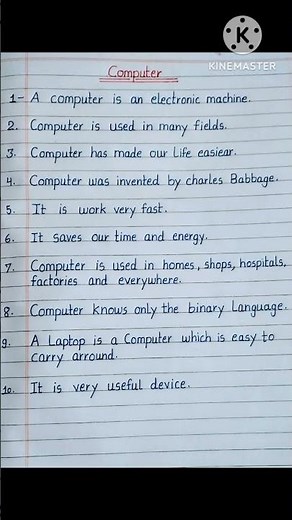 KINEMASTER
Computer
1- A computer is an electronic machine.
2. Computer is used in many fields.
3. Computer has made our Life easiear.
4. Computer was invented by charles Babbage.
5. It is work very fast.
6. It saves our time and energy.
7. Computer is used in homes, shops, hospitals,
factories and everywhere.
8. Computer knows only the binary Language.
9. A Laptop is a Computer which is easy to
carry arround.
10. It is very useful device.